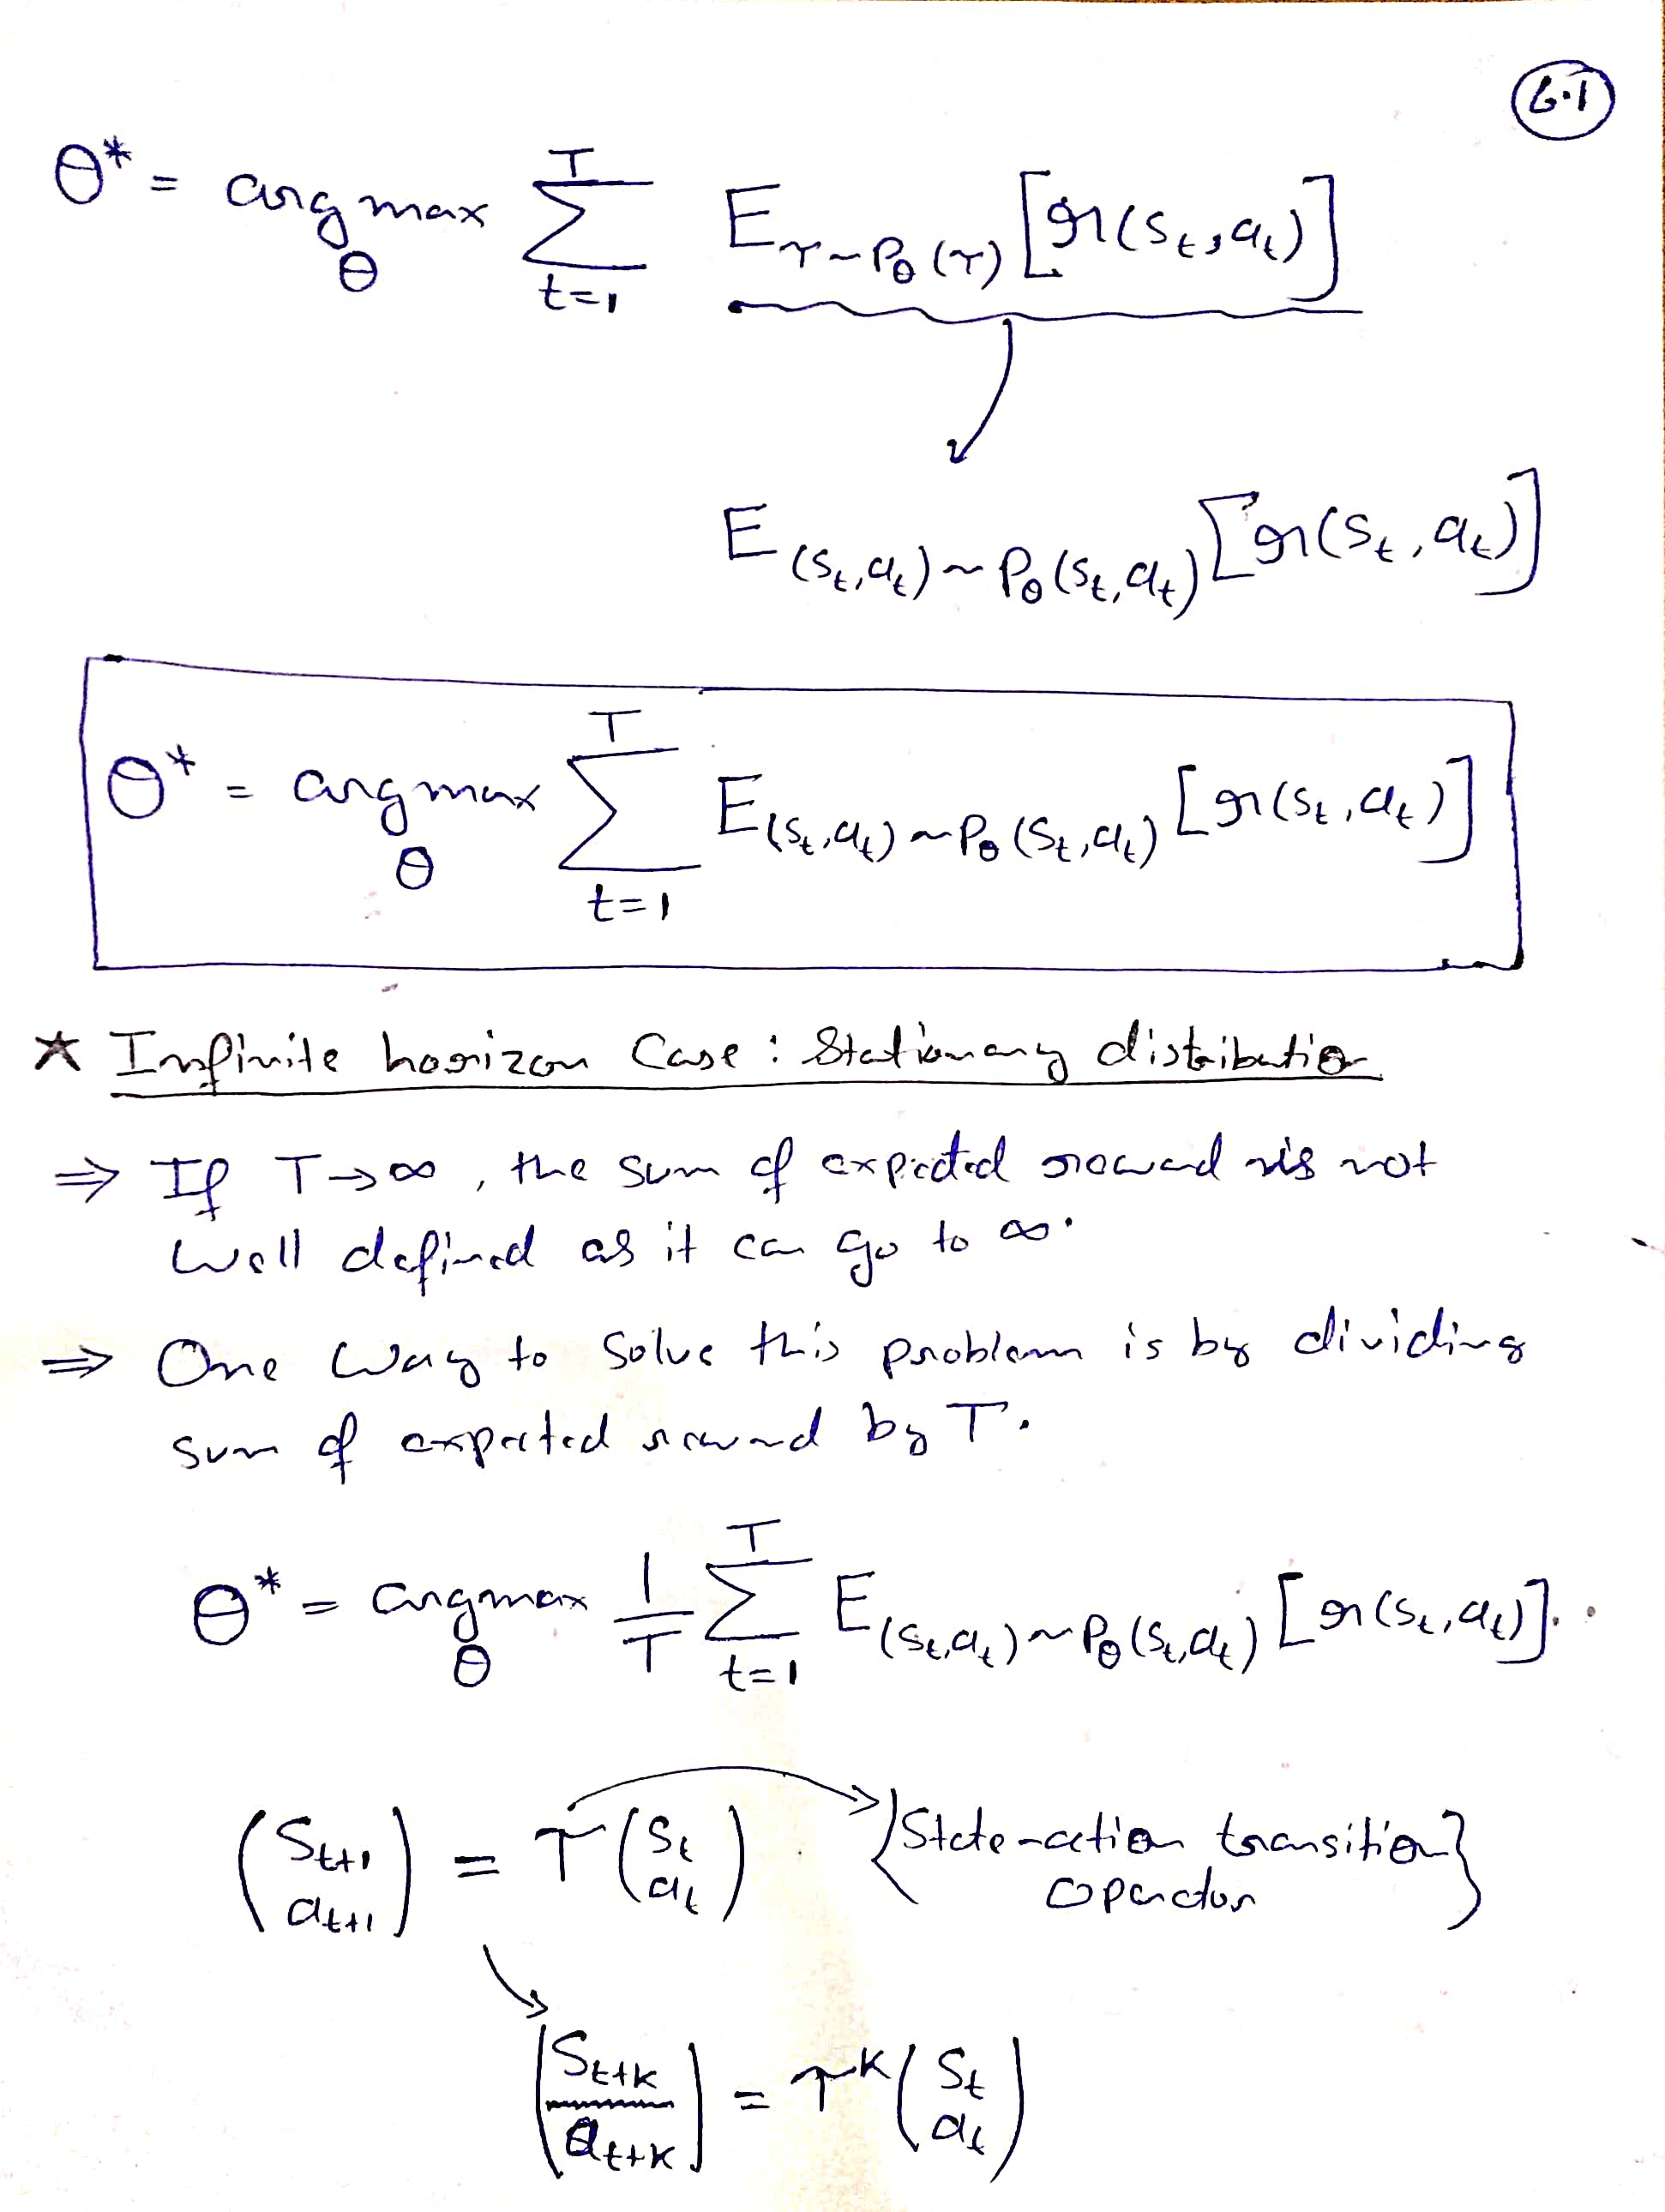 6.1
θ* = argmax_θ Σ_{t=1}^{T} E_{τ~P_θ(τ)} [r(s_t, a_t)]
E_{(s_t, a_t) ~ P_θ(s_t, a_t)} [r(s_t, a_t)]
θ* = argmax_θ Σ_{t=1}^{T} E_{(s_t, a_t) ~ P_θ(s_t, a_t)} [r(s_t, a_t)]
★ Infinite horizon Case : Stationary distribution
⇒ If T → ∞, the sum of expected reward is not
well defined as it can go to ∞.
⇒ One way to solve this problem is by dividing
sum of expected reward by T.
θ* = argmax_θ 1/T Σ_{t=1}^{T} E_{(s_t, a_t) ~ P_θ(s_t, a_t)} [r(s_t, a_t)].
(s_{t+1} a_{t+1}) = τ (s_t a_t) → {State-action transition
operator}
(s_{t+k} a_{t+k}) = τ^k (s_t a_t)